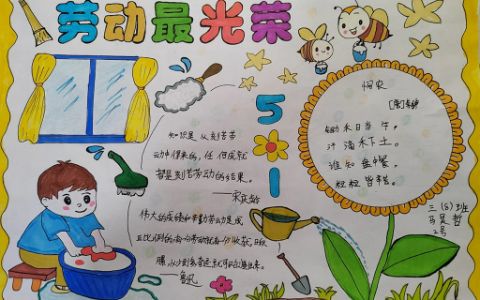 劳动最光荣
5
1
悯农
[唐]李绅
锄禾日当午，
汗滴禾下土。
谁知盘中餐，
粒粒皆辛苦。
知识是从刻苦劳
动中得来的，任何成就
都是刻苦劳动的结果。
——宋庆龄
伟大的成绩和辛勤劳动是成
正比例的，有一分劳动就有一分收获，日积
月累，从少到多，奇迹就可以创造出来。
——鲁迅
三（6）班
2号